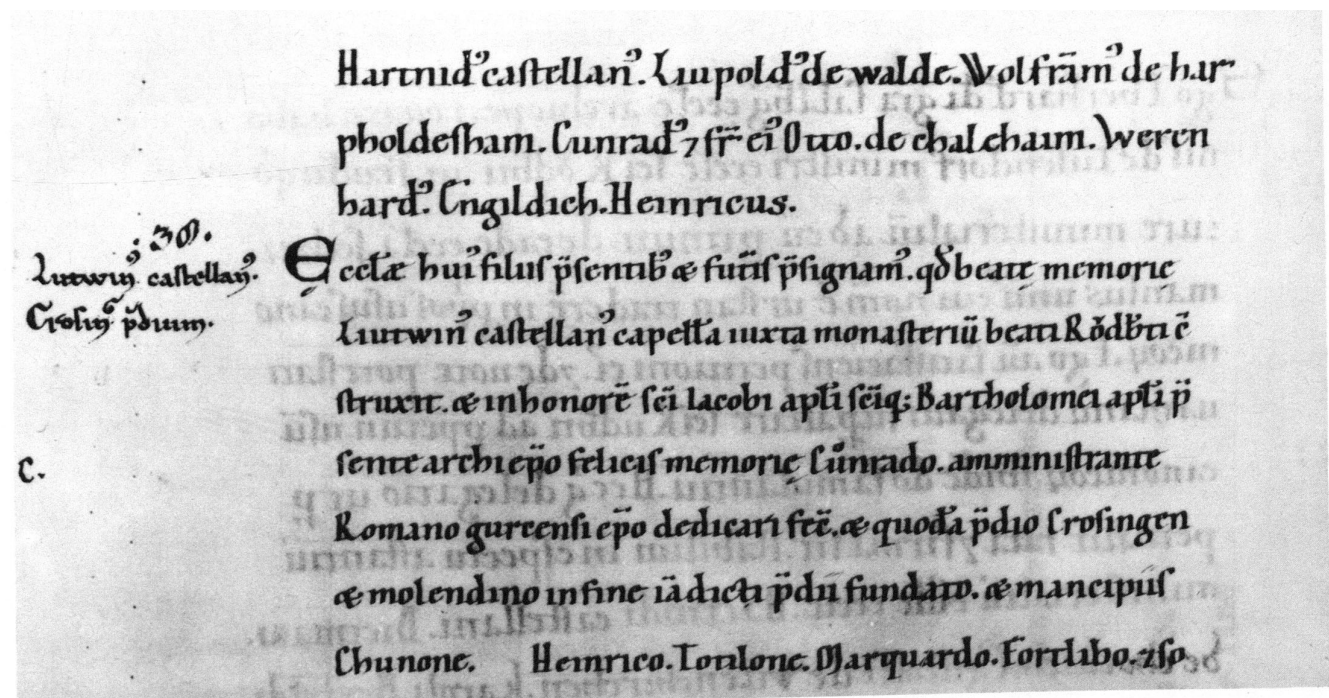 Hartnidꝰ castellanꝰ. Liupoldꝰ de walde. Wolfrāmꝰ de har
pholdesham. Cunradꝰ ⁊ fr̄ eiꝰ Otto. de chalchaim. Weren
hardꝰ. Engildich. Heinricus.
:38.
Lutwinꝰ castellanꝰ.
Ęccl̄æ huiꝰ filiis p̄sentibꝰ & futīs p̄signamꝰ. qđ beatę memorie
p̄dium.
Liutwinꝰ castellanꝰ capellā iuxta monasteriū beati Rǒdb̄ti c̄
struxit. & in honorē sc̄i Iacobi apl̄i sc̄iq; Bartholomei apl̄i p̄
C.
sente archiep̄o felicis memorię Cůnrado. amministrante
Romano gurcensi ep̄o dedicari fec̄. & quodā p̄dio Crosingen
& molendino in fine iādicti p̄dii fundato. & mancipiis
Chunone. Heinrico. Totilone. Marquardo. Fortlibo. ⁊ so